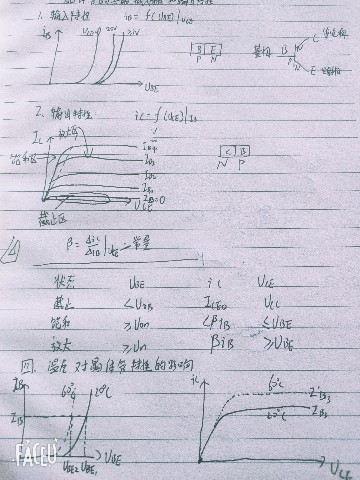 1. 输入特性 iB = f(UBE)|UCE
iB
UBE
B E
P N
基极 B
C
E
2. 输出特性 iC = f(UCE)|IB
IC 放大区
饱和区
IB4
IB3
IB2
IB1
IB=0
UCE
截止区
C B
N P
β = ΔiC/ΔiB|UCE = 常量
状态 UBE iC UCE
截止 <Uon ICEO VCC
饱和 ≥Uon <βiB ≤UBE
放大 ≥Uon βiB ≥UBE
四. 温度对晶体管特性的影响
IB 60℃ 20℃
IB
UBE2 UBE1 UBE
iC 60℃
20℃
UCE
FACEU